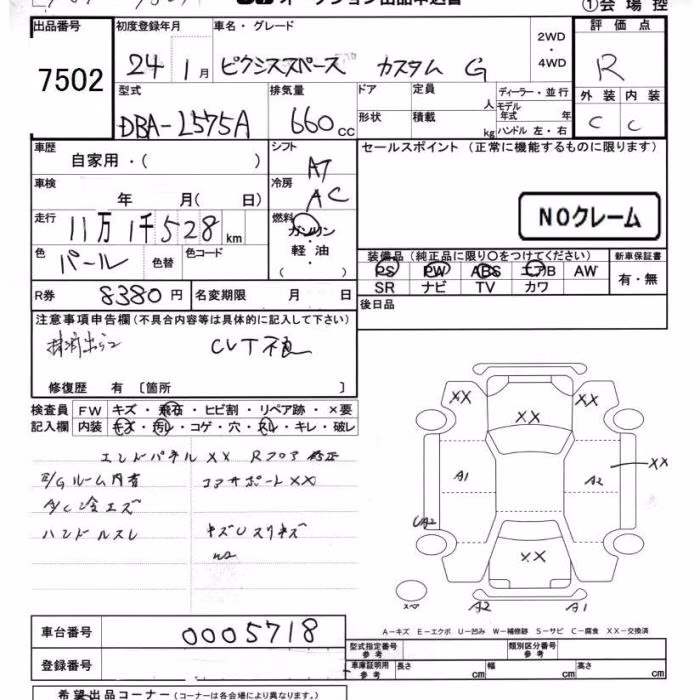 ①会場控
出品番号 初度登録年月 車名・グレード 2WD・4WD 評価点
7502 24 1月 ピクシススペース カスタム G R
型式 排気量 ドア 定員 人 ディーラー・並行 外装 内装
DBA-L575A 660cc 形状 積載 kg モデル年式 年 ハンドル 左・右 C C
車歴 シフト セールスポイント（正常に機能するものに限ります）
自家用・( ) AT
車検 年 月(日) 冷房 AC
NOクレーム
走行 11万1千528km 燃料 ガソリン・軽油・( )
色 パール 色替 色コード
装備品（純正品に限り〇をつけてください） 新車保証書
PS PW ABS エアB AW 有・無
SR ナビ TV カワ
R券 8380円 名変期限 月 日 後日品
注意事項申告欄（不具合内容等は具体的に記入して下さい）
CVT不良
修復歴 有〔箇所 〕
検査員 FW キズ・飛石・ヒビ割・リペア跡・×要
記入欄 内装 キズ・汚レ・コゲ・穴・スレ・キレ・破レ
エンドパネルXX Rフロア修正
コアサポートXX
A/C冷エズ
ハンドルスレ キズUスリキズ
W2
XX XX XX
A1 A2 XX
UA2
XX
スペア A2 A1
A－キズ E－エクボ U－凹み W－補修跡 S－サビ C－腐食 XX－交換済
車台番号 0005718
登録番号
型式指定番号 参考 類別区分番号 参考
車庫証明用 参考 長さ cm 幅 cm 高さ cm
希望出品コーナー（コーナーは各会場により異なります。）